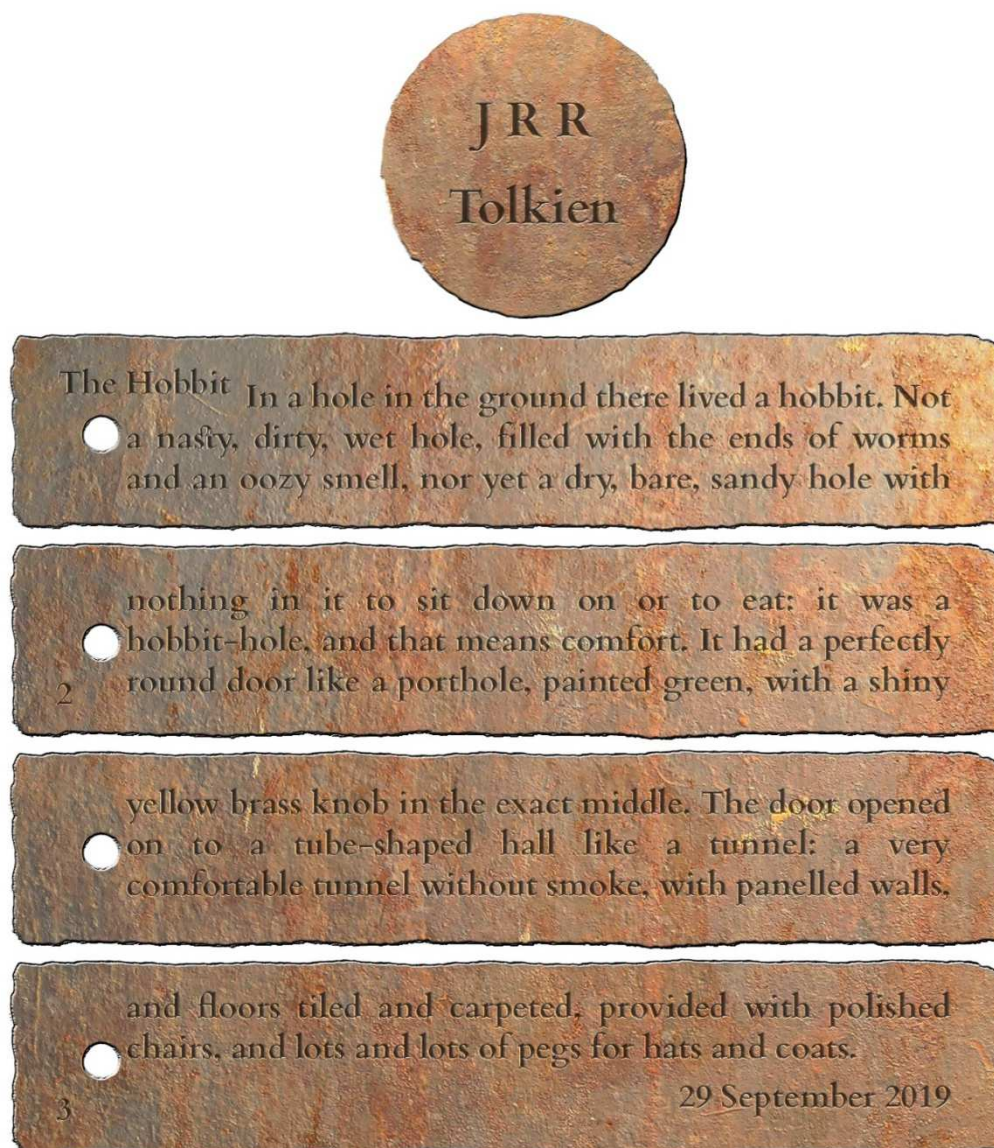 J R R
Tolkien
The Hobbit In a hole in the ground there lived a hobbit. Not
a nasty, dirty, wet hole, filled with the ends of worms
and an oozy smell, nor yet a dry, bare, sandy hole with
nothing in it to sit down on or to eat: it was a
hobbit-hole, and that means comfort. It had a perfectly
round door like a porthole, painted green, with a shiny
2
yellow brass knob in the exact middle. The door opened
on to a tube-shaped hall like a tunnel: a very
comfortable tunnel without smoke, with panelled walls,
and floors tiled and carpeted, provided with polished
chairs, and lots and lots of pegs for hats and coats.
29 September 2019
3